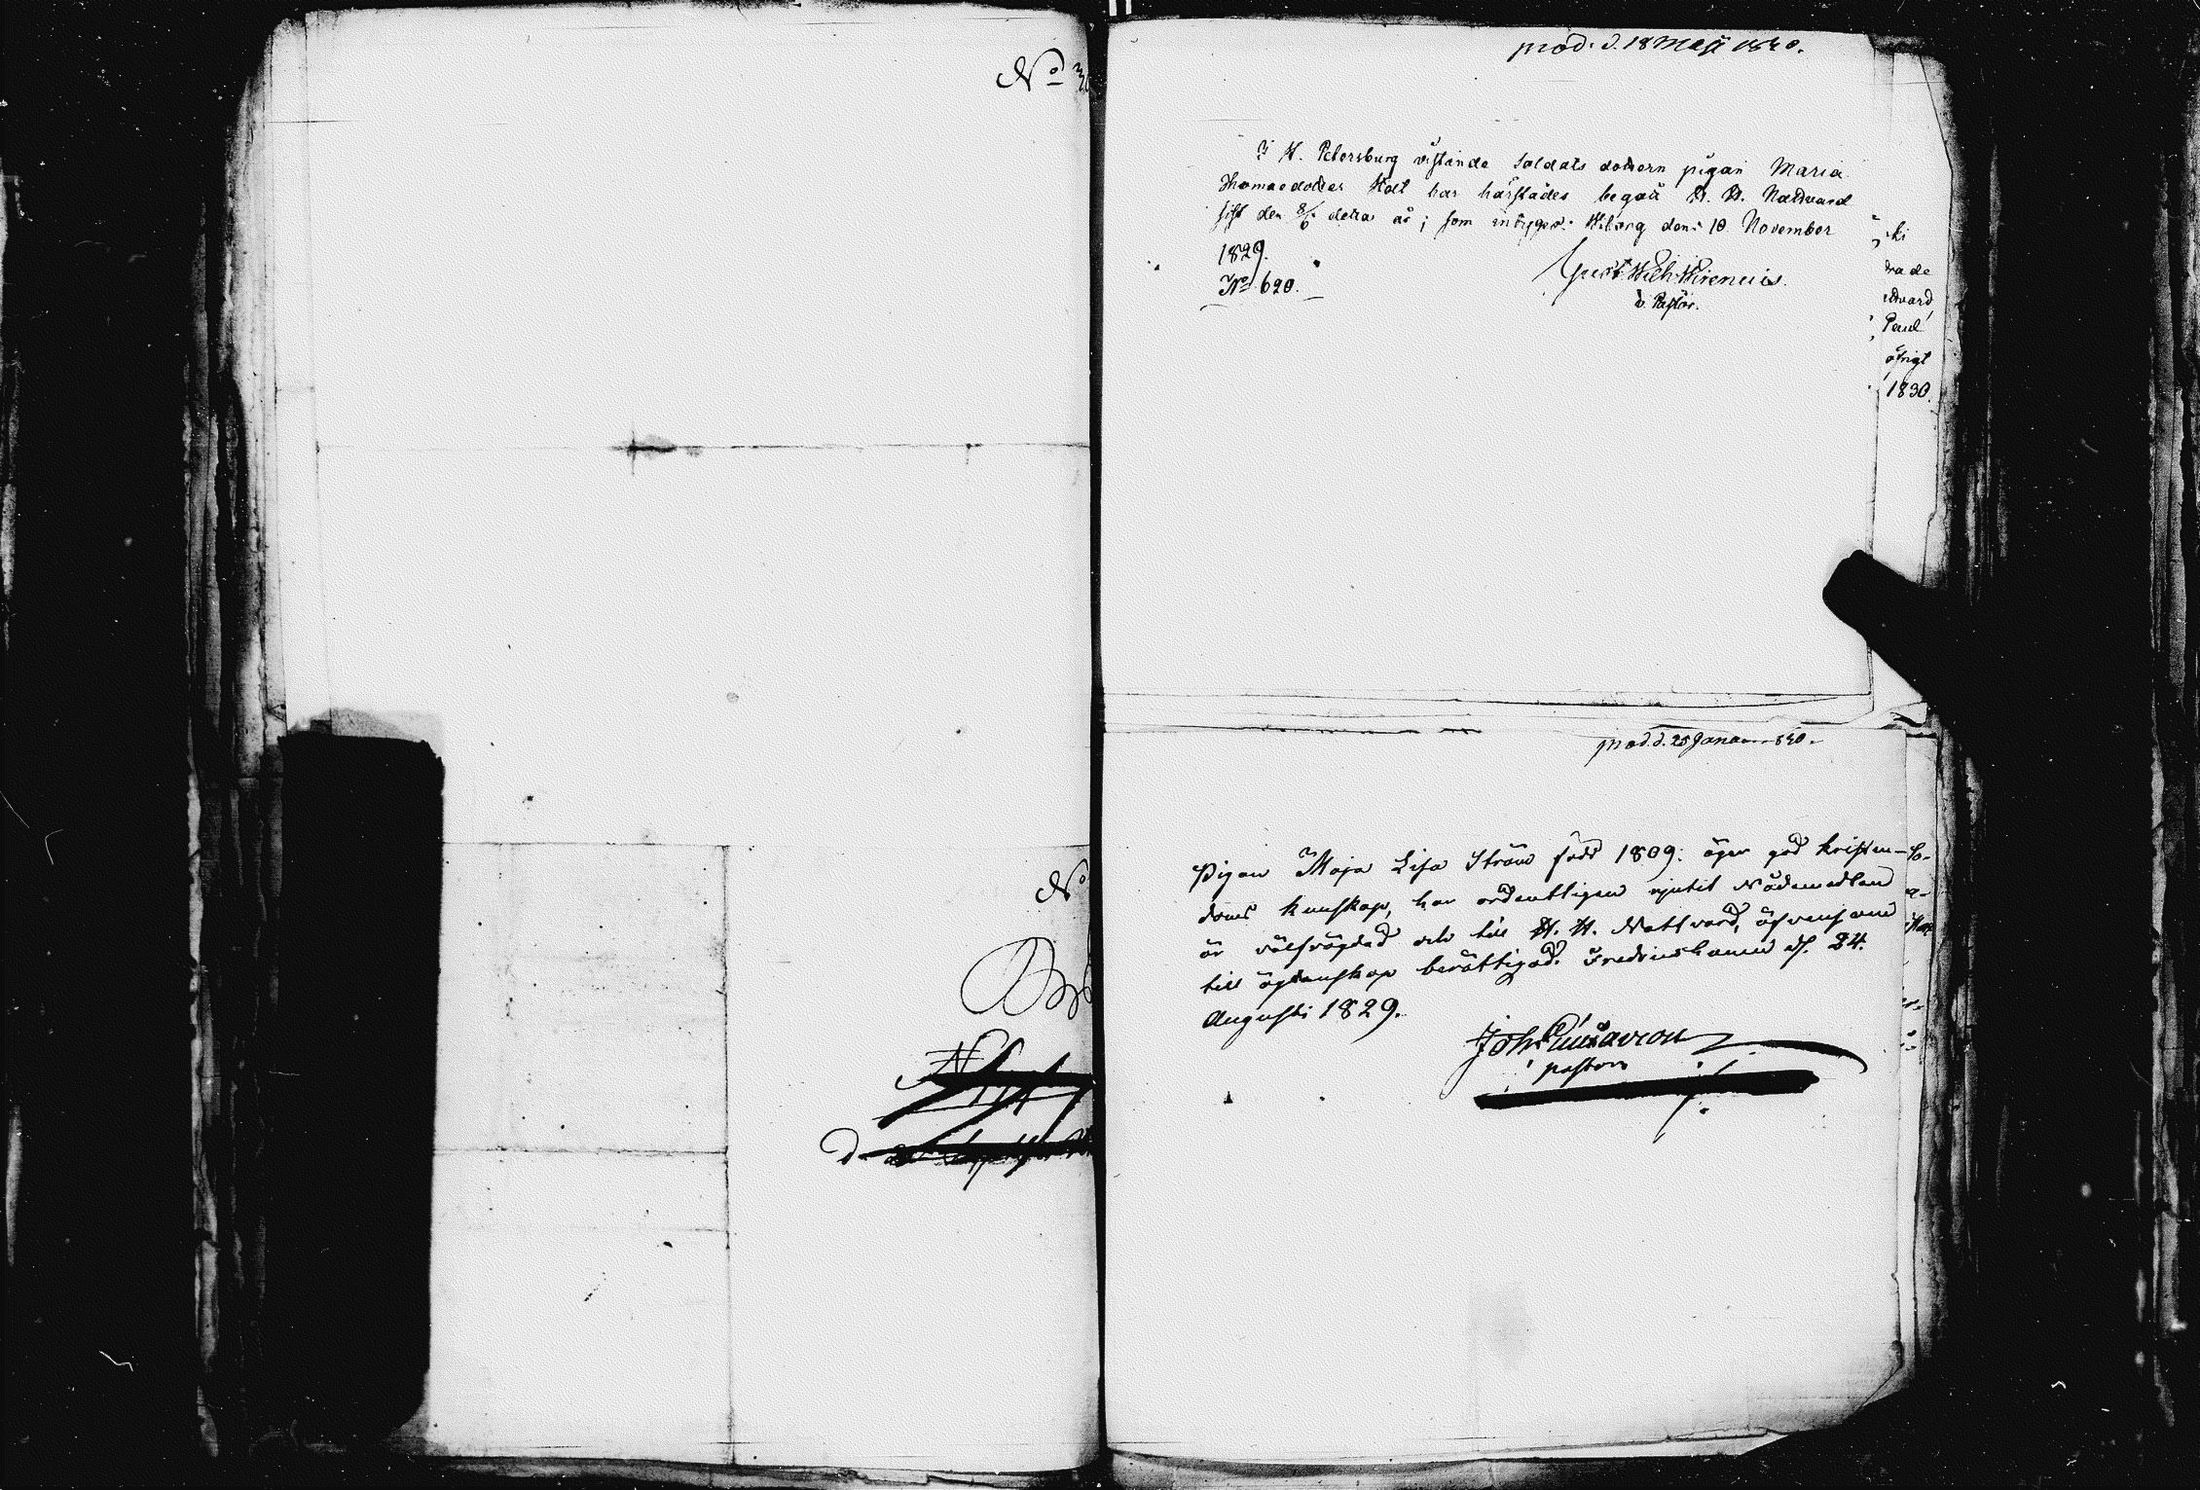 No 3
prod. d. 18 Maji 1830.
I St. Petersburg vistande Soldats dottern pigan Maria
Thomaedotter har härstädes begått H. H. Nattvard
sist den 8/6 detta år; som intygar. Wiborg den 10 November
1829.
No 620.
Gust. Wilh. Wirenius.
v. Pastor.
ski
vard
Paul
öfrigt
1830.
No
prod. d. 25 1830.
Pigan Maja Lisa Ström född 1809: äger god kristen-
doms kunskap, har ordentligen njutit Nådemedlen
är välfrägdad och till H. H. Nattvard, äfvensom
till ägtenskap berättigad. Fredrikshamn d. 24.
Augusti 1829.
Joh.
pastor